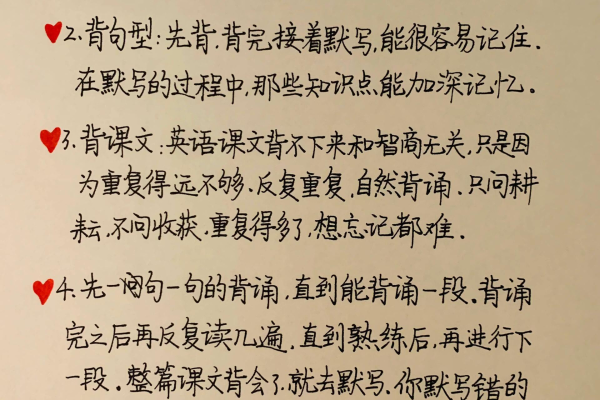 2.背句型:先背.背完接着默写,能很容易记住.
在默写的过程中,那些知识点能加深记忆。
3.背课文:英语课文背不下来和智商无关,只是因
为重复得远不够.反复重复,自然背诵.只问耕
耘,不问收获,重复得多了,想忘记都难.
4.先一句一句的背诵,直到能背诵一段.背诵
完之后再反复读几遍.直到熟练后,再进行下
一段.整篇课文背会了,就去默写.你默写错的